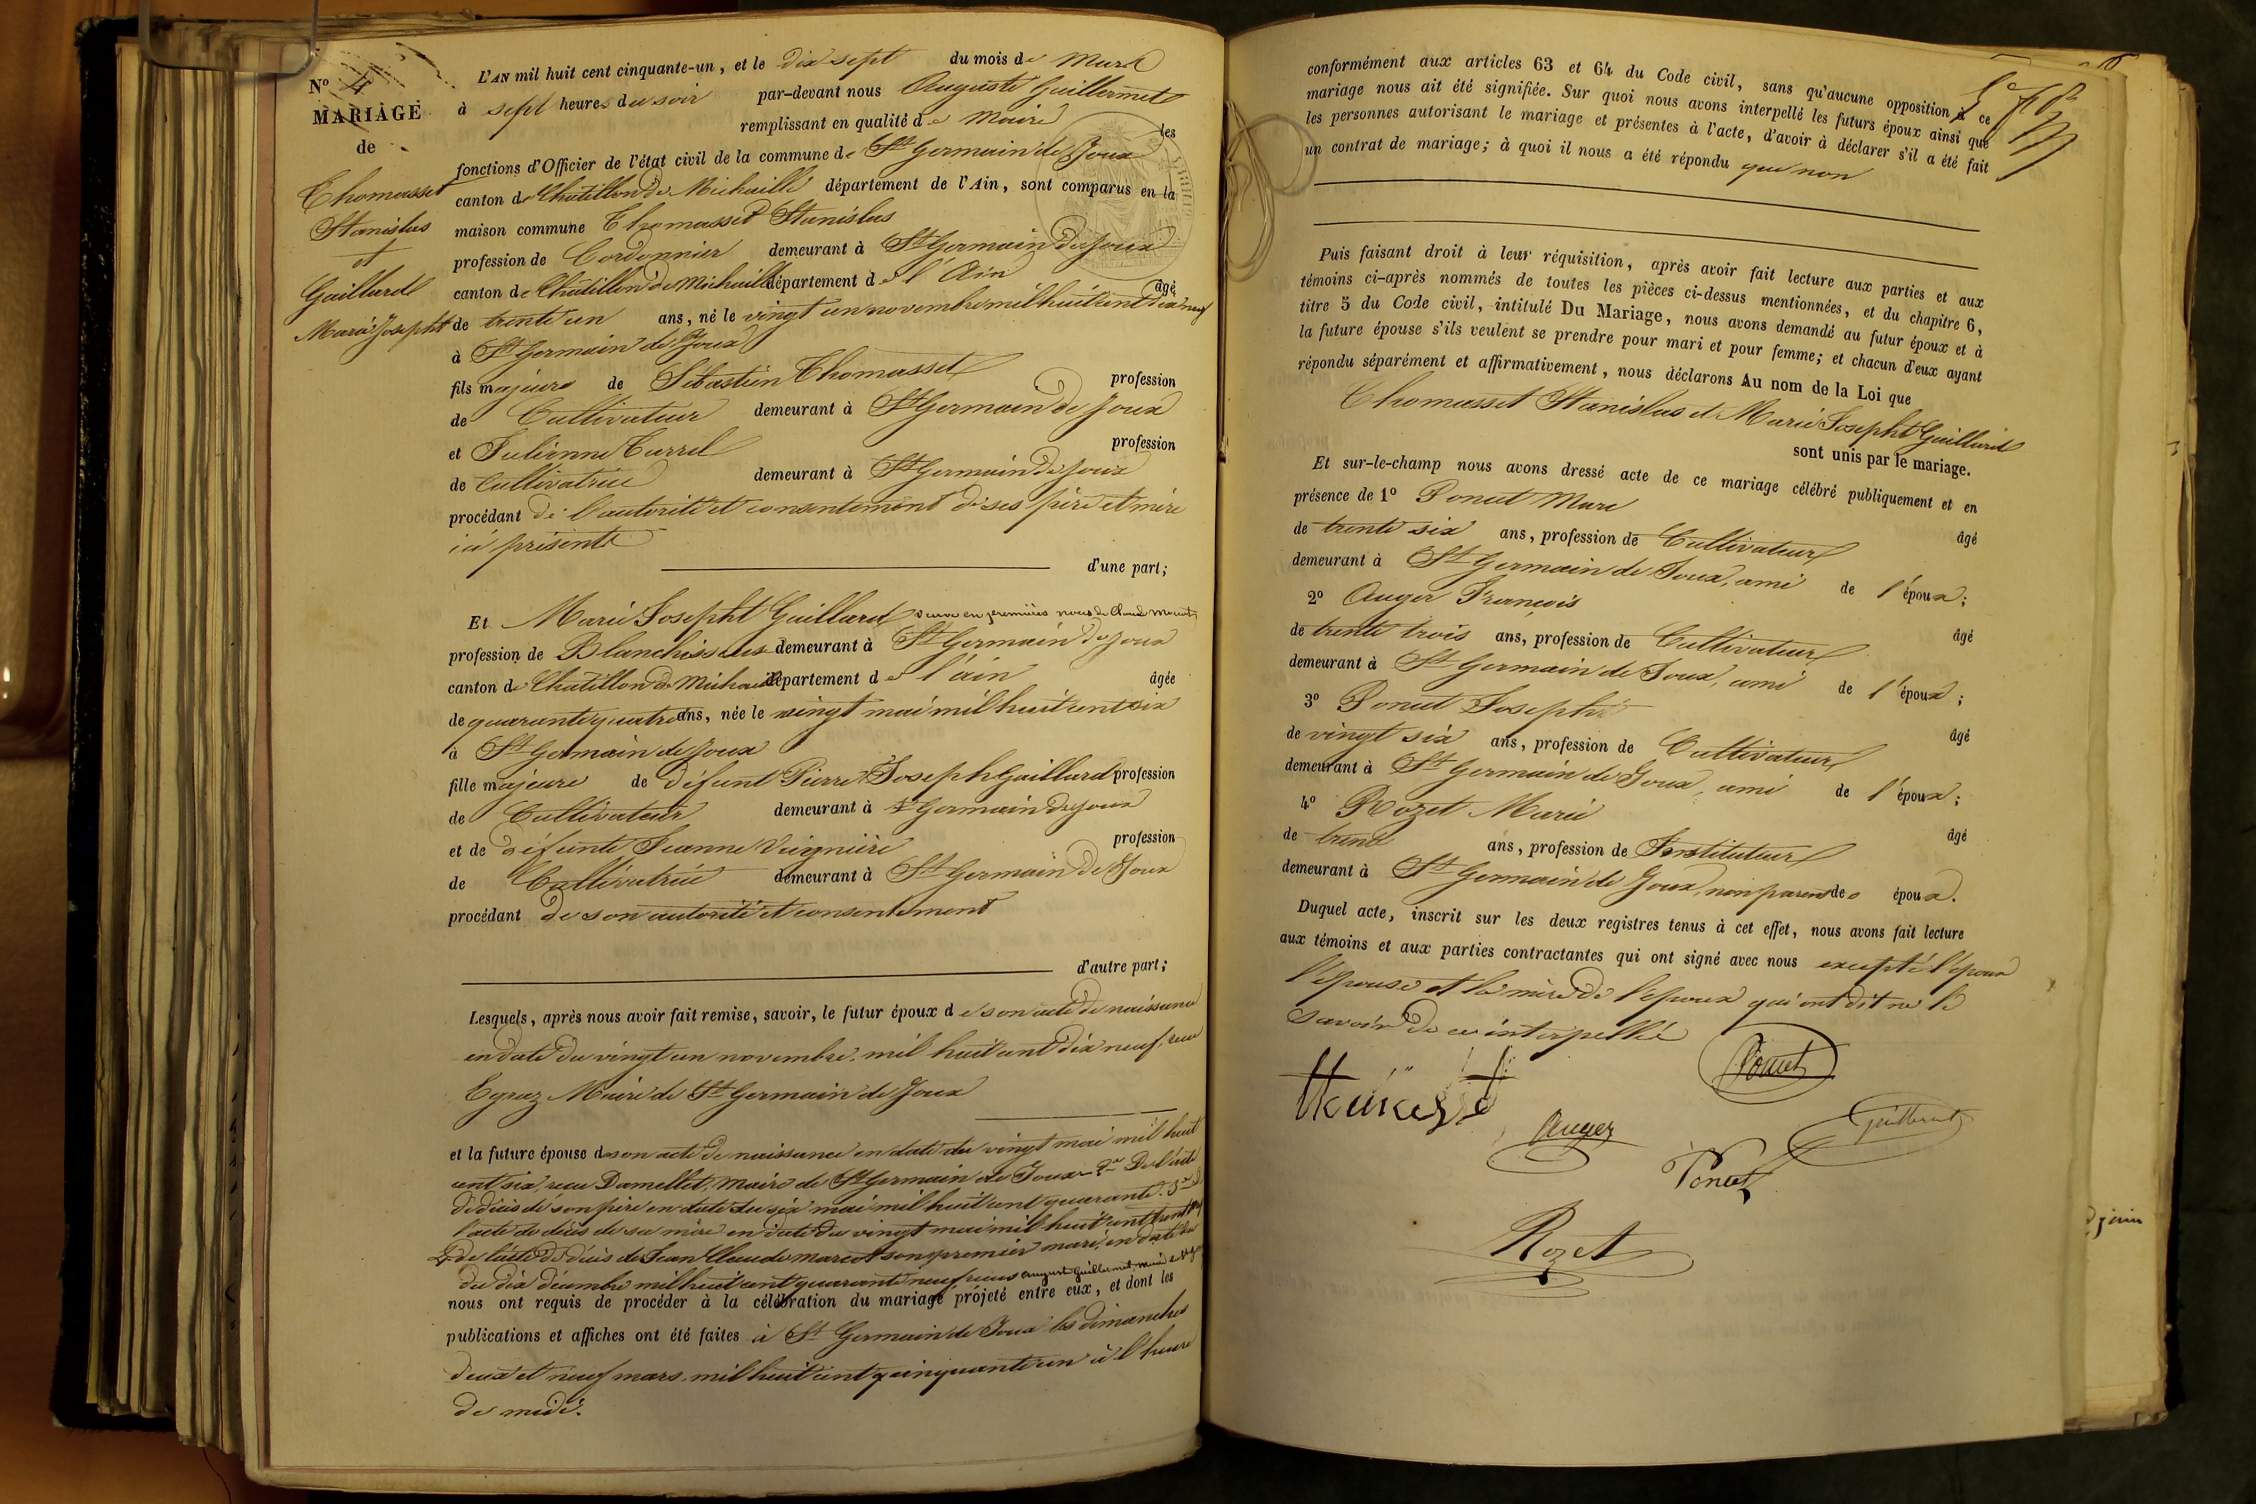 N° 4
MARIAGE
de
Thomasset
Stanislas
et
Gaillard
Marie Josephte
L'AN mil huit cent cinquante-un, et le dix sept du mois de Mars
à sept heures du soir par-devant nous Auguste Guillermet
remplissant en qualité de Maire les
fonctions d'Officier de l'état civil de la commune de St Germain de Joux
canton de Chatillon de Michaille département de l'Ain, sont comparus en la
maison commune Thomasset Stanislas
profession de Cordonnier demeurant à St Germain de Joux
canton de Chatillon de Michaille département de l'Ain âgé
de trente un ans, né le vingt un novembre mil huit cent dix neuf
à St Germain de Joux
fils majeur de Sébastien Thomasset profession
de Cultivateur demeurant à St Germain de Joux
et Julienne Currel profession
de Cultivatrice demeurant à St Germain de Joux
procédant de l'autorité et consentement de ses père et mère
ici présents
d'une part;
Et Marie Josephte Gaillard veuve en premières noces de Claude Marcet
profession de Blanchisseuse demeurant à St Germain de Joux
canton de Chatillon de Michaille département de l'ain âgée
de quarante quatre ans, née le vingt mai mil huit cent six
à St Germain de Joux
fille majeure de défunt Pierre Joseph Gaillard profession
de Cultivateur demeurant à St Germain de Joux
et de défunte Jeanne profession
de Cultivatrice demeurant à St Germain de Joux
procédant de son autorité et consentement
d'autre part;
Lesquels, après nous avoir fait remise, savoir, le futur époux de son acte de naissance
en date du vingt un novembre mil huit cent dix neuf, reçu
Egraz Maire de St Germain de Joux
et la future épouse de son acte de naissance en date du vingt mai mil huit
cent six, reçu Damellet, Maire de St Germain de Joux 2° De l'acte
de décès de son père en date du six mai mil huit cent quarante. 3°
l'acte de décès de sa mère en date du vingt mai mil huit cent
4° de l'acte de décès de Jean Claude Marcet son premier mari, en date
du dix décembre mil huit cent quarante neuf reçus August Guillermet maire
nous ont requis de procéder à la célébration du mariage projeté entre eux, et dont les
publications et affiches ont été faites à St Germain de Joux les dimanches
deux et neuf mars mil huit cent cinquante un à l'heure
de midi.
conformément aux articles 63 et 64 du Code civil, sans qu'aucune opposition à ce
mariage nous ait été signifiée. Sur quoi nous avons interpellé les futurs époux ainsi que
les personnes autorisant le mariage et présentes à l'acte, d'avoir à déclarer s'il a été fait
un contrat de mariage; à quoi il nous a été répondu que non
Puis faisant droit à leur réquisition, après avoir fait lecture aux parties et aux
témoins ci-après nommés de toutes les pièces ci-dessus mentionnées, et du chapitre 6,
titre 5 du Code civil, intitulé Du Mariage, nous avons demandé au futur époux et à
la future épouse s'ils veulent se prendre pour mari et pour femme; et chacun d'eux ayant
répondu séparément et affirmativement, nous déclarons Au nom de la Loi que
Thomasset Stanislas et Marie Josephte Gaillard
sont unis par le mariage.
Et sur-le-champ nous avons dressé acte de ce mariage célébré publiquement et en
présence de 1° Poncet Marc
âgé
de trente six ans, profession de Cultivateur
demeurant à St Germain de Joux, ami de l'époux;
2° Auger François
âgé
de trente trois ans, profession de Cultivateur
demeurant à St Germain de Joux, ami de l'époux;
3° Poncet Joseph
âgé
de vingt six ans, profession de Cultivateur
demeurant à St Germain de Joux, ami de l'époux;
4° Rozet Marie
âgé
de trente ans, profession de Instituteur
demeurant à St Germain de Joux, non parent des époux.
Duquel acte, inscrit sur les deux registres tenus à cet effet, nous avons fait lecture
aux témoins et aux parties contractantes qui ont signé avec nous excepté l'époux
l'épouse et la mère de l'époux qui ont dit ne le
savoir de ce interpellés
Poncet
Auger
Guillermet
Poncet
Rozet